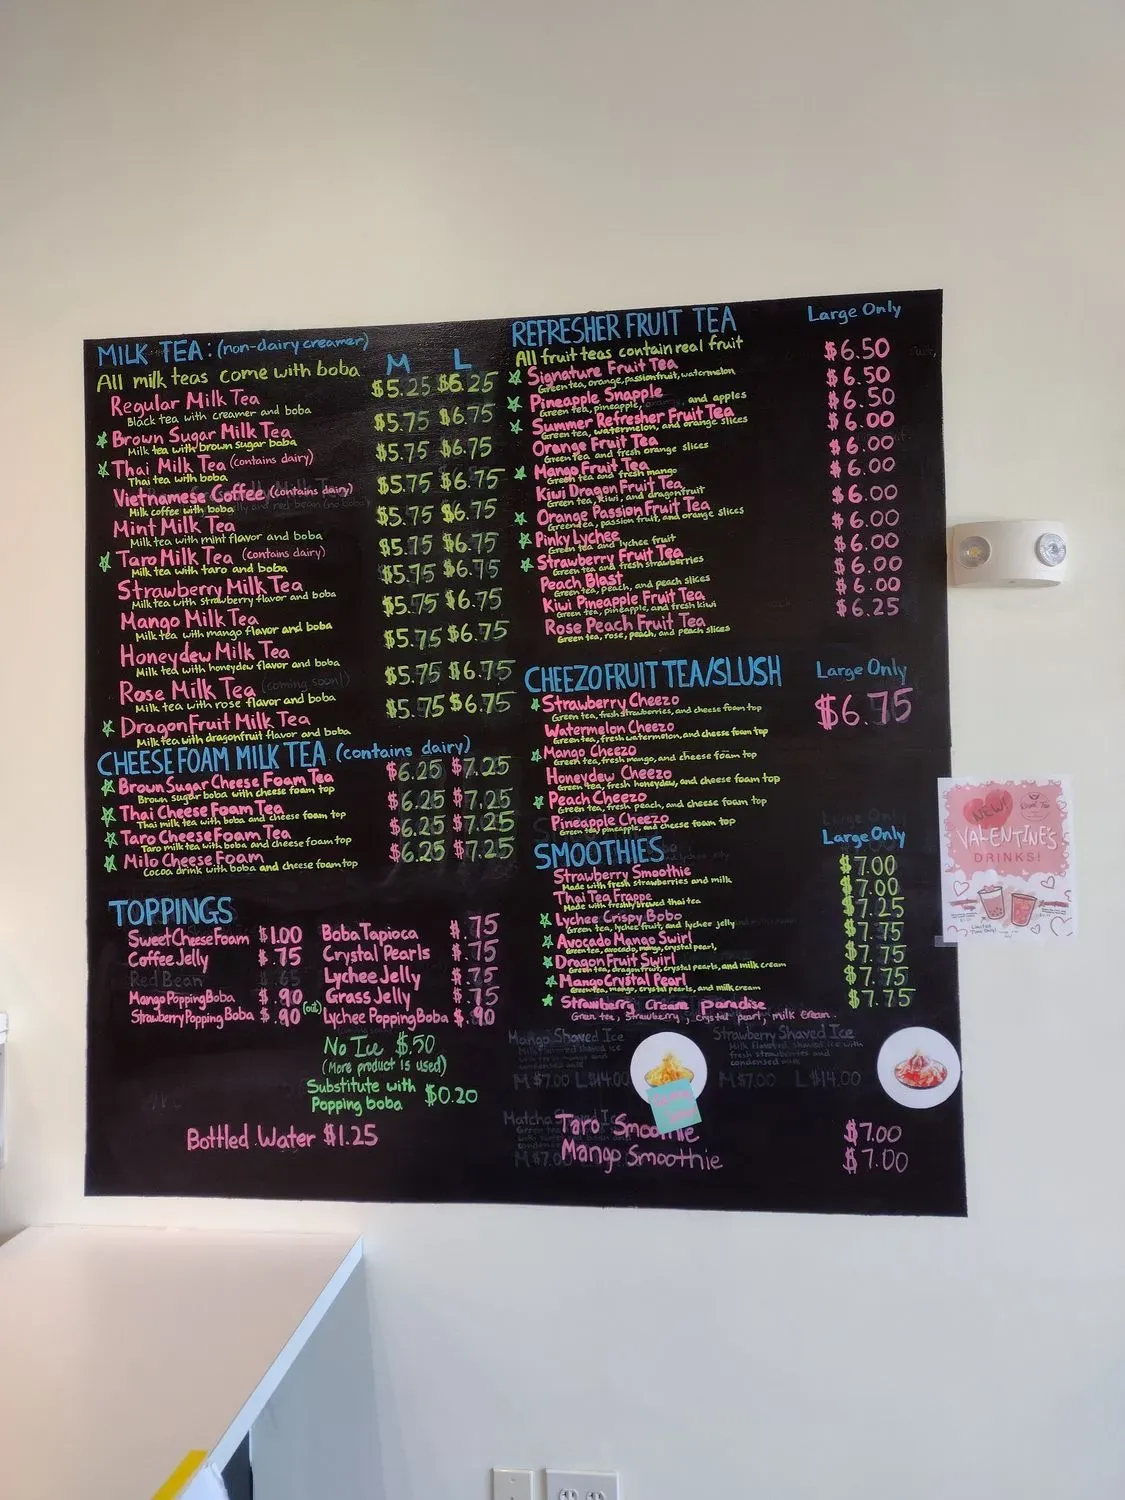 MILK TEA: (non-dairy creamer)
All milk teas come with boba
M L
Regular Milk Tea $5.25 $6.25
Black tea with creamer and boba
Brown Sugar Milk Tea $5.75 $6.75
Milk tea with brown sugar boba
Thai Milk Tea (contains dairy) $5.75 $6.75
Thai tea with boba
Vietnamese Coffee (contains dairy) $5.75 $6.75
Milk coffee with boba
Mint Milk Tea $5.75 $6.75
Milk tea with mint flavor and boba
Taro Milk Tea (contains dairy) $5.75 $6.75
Milk tea with taro and boba
Strawberry Milk Tea $5.75 $6.75
Milk tea with strawberry flavor and boba
Mango Milk Tea $5.75 $6.75
Milk tea with mango flavor and boba
Honeydew Milk Tea $5.75 $6.75
Milk tea with honeydew flavor and boba
Rose Milk Tea (coming soon!) $5.75 $6.75
Milk tea with rose flavor and boba
DragonFruit Milk Tea $5.75 $6.75
Milk tea with dragonfruit flavor and boba
CHEESE FOAM MILK TEA (contains dairy)
Brown Sugar Cheese Foam Tea $6.25 $7.25
Brown sugar boba with cheese foam top
Thai Cheese Foam Tea $6.25 $7.25
Thai milk tea with boba and cheese foam top
Taro Cheese Foam Tea $6.25 $7.25
Taro milk tea with boba and cheese foam top
Milo Cheese Foam $6.25 $7.25
Cocoa drink with boba and cheese foam top
TOPPINGS
Sweet Cheese Foam $1.00
Coffee Jelly $.75
Red Bean $.65
Mango Popping Boba $.90
Strawberry Popping Boba $.90 (out)
Boba Tapioca $.75
Crystal Pearls $.75
Lychee Jelly $.75
Grass Jelly $.75
Lychee Popping Boba $.90
No Ice $.50
(More product is used)
Substitute with
Popping boba $0.20
Bottled Water $1.25
REFRESHER FRUIT TEA Large Only
All fruit teas contain real fruit
Signature Fruit Tea $6.50
Green tea, orange, passionfruit, watermelon
Pineapple Snapple $6.50
Green tea, pineapple, and apples
Summer Refresher Fruit Tea $6.50
Green tea, watermelon, and orange slices
Orange Fruit Tea $6.00
Green tea and fresh orange slices
Mango Fruit Tea $6.00
Green tea and fresh mango
Kiwi Dragon Fruit Tea $6.00
Green tea, kiwi, and dragonfruit
Orange Passion Fruit Tea $6.00
Green tea, passion fruit, and orange slices
Pinky Lychee $6.00
Green tea and lychee fruit
Strawberry Fruit Tea $6.00
Green tea and fresh strawberries
Peach Blast $6.00
Green tea, peach, and peach slices
Kiwi Pineapple Fruit Tea $6.00
Green tea, pineapple, and fresh kiwi
Rose Peach Fruit Tea $6.25
Green tea, rose, peach, and peach slices
CHEEZO FRUIT TEA/SLUSH Large Only
Strawberry Cheezo $6.75
Green tea, fresh strawberries, and cheese foam top
Watermelon Cheezo
Green tea, fresh watermelon, and cheese foam top
Mango Cheezo
Green tea, fresh mango, and cheese foam top
Honeydew Cheezo
Green tea, fresh honeydew, and cheese foam top
Peach Cheezo
Green tea, fresh peach, and cheese foam top
Pineapple Cheezo
Green tea, pineapple, and cheese foam top
SMOOTHIES Large Only
Strawberry Smoothie $7.00
Made with fresh strawberries and milk
Thai Tea Frappe $7.00
Made with freshly brewed thai tea
Lychee Crispy Bobo $7.25
Green tea, lychee fruit, and lychee jelly
Avocado Mango Swirl $7.75
Green tea, avocado, mango, crystal pearl,
Dragon Fruit Swirl $7.75
Green tea, dragonfruit, crystal pearls, and milk cream
Mango Crystal Pearl $7.75
Green tea, mango, crystal pearls, and milk cream
Strawberry Cream Paradise $7.75
Green tea, strawberry, crystal pearl, milk cream.
Mango Shaved Ice
M $7.00 L $14.00
Strawberry Shaved Ice
Milk flavored shaved ice with
fresh strawberries and
condensed milk
M $7.00 L $14.00
Matcha Shaved Ice
M $7.00
Taro Smoothie $7.00
Mango Smoothie $7.00
NEW!
VALENTINE'S
DRINKS!